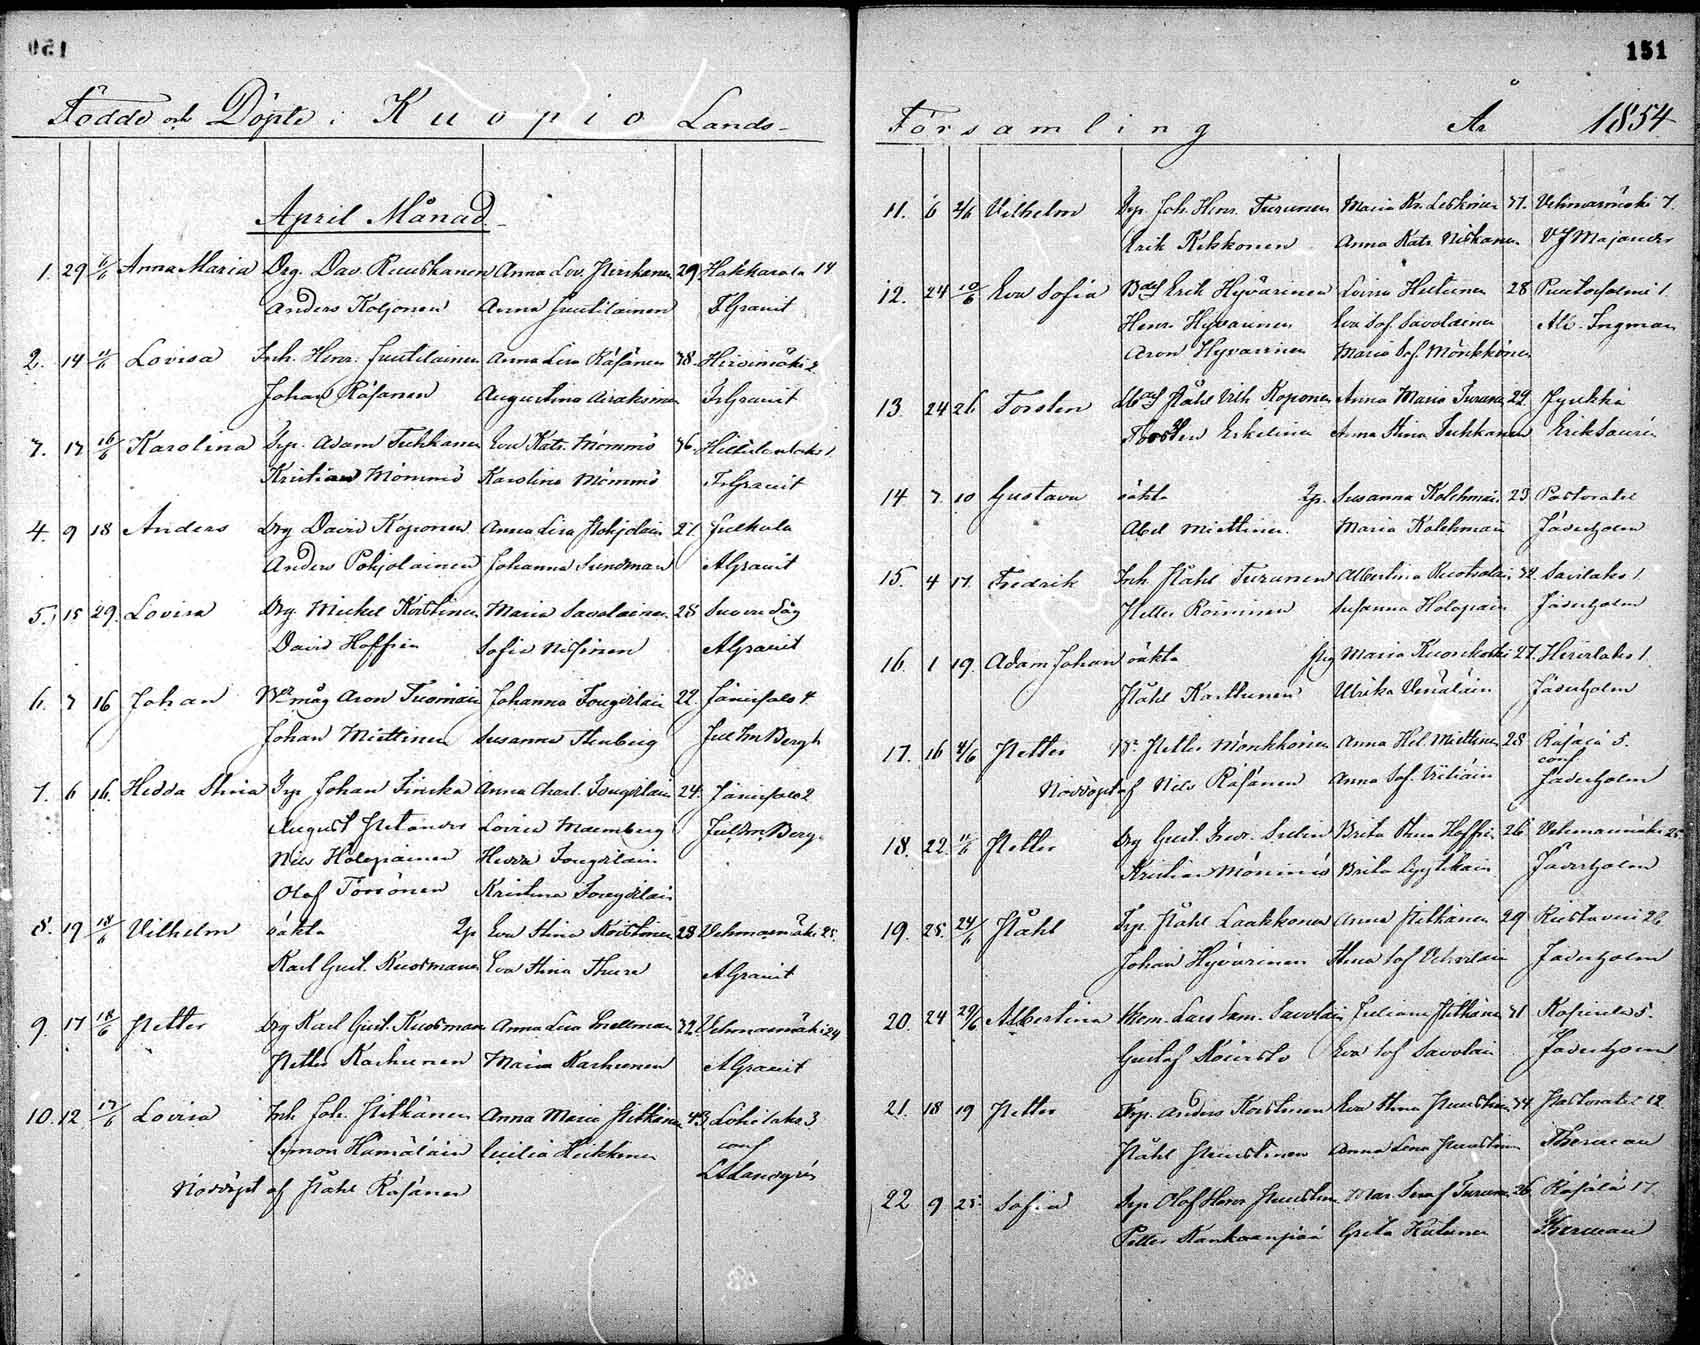 150
Födde och Döpte i Kuopio Lands-
April Månad.
1. 29 6/6 Anna Maria Drg. Dav. Ruuskanen Anna Lov. Pirskanen 29. Hakkarala 14
Anders Koljonen Anna Juutilainen F Granit
2. 14 11/6 Lovisa Inh. Henr. Juutilainen Anna Lisa Räsänen 38. Hirvimäki 2
Johan Räsänen Augustina Airaksinen Fr Granit
7. 17 16/6 Karolina Irp. Adam Tuhkanen Eva Katr. Mömmö 36.
Kristian Mömmö Karolina Mömmö Fr Granit
4. 9 18 Anders Drg David Koponen Anna Lisa Pohjolain 21. Julkula
Anders Pohjolainen Johanna Sundman A Granit
5. 15 29. Lovisa Drg. Mickel Korthinen Maria Savolainen 28
David Hoffrén Sofia Nissinen A Granit
6. 7 16 Johan måg Aron Tuomain Johanna 22. Jänissalo 4.
Johan Miettinen Susanna Stenberg Jul Im Bergh
7. 6 16. Hedda Stina Irp Johan Anna Charl. 24. Jänissalo 2
August Lovisa Malmberg Jul Im Berg
Nils Holopainen Hedda
Olof Törrönen Kristina
8. 19 18/6 Vilhelm oäkta Eva Stina Kortinen 23 Vehmasmäki 25.
Karl Gust. Kuosmanen Eva Stina Thure A Granit
9. 17 18/6 Petter Drg Karl Gust. Kuosmanen Anna Lisa Snellman 32. Vehmasmäki 24
Petter Karhunen Maria Karhunen A Granit
10. 12 17/6 Lovisa Inh. Joh. Pitkänen Anna Maria Pitkänen 43 Lohilaks 3
Simon Hämäläin Cecilia Heikkinen conf
Nöddöpt af Påhl Räsänen
151
Församling År 1854
11. 6 2/6 Vilhelm Irp. Joh. Henr. Turunen Maria Kr. Leskinen 31. Vehmasmäki 7.
Erik Kekkonen Anna Katr. Niskanen VJ Majander
12. 24 10/6 Eva Sofia Erik Hyvärinen Lovisa Hutunen 28 Puutosalmi 1.
Henr. Hyvärinen Eva Sof. Savolainen Al. Ingman
Aron Hyvärinen Maria Sof. Mönkkönen
13. 24 26 Torsten Påhl Vilh Koponen Anna Maria Turunen 29. Jynkkä
Torsten Eskelinen Anna Stina Tuhkanen Erik
14. 7. 10 Gustava oäkta Susanna Kolehmai. 23. Pastoratet
Abel Miettinen Maria Kolehmain Jäderholm
15. 4 17. Fredrik Inh. Påhl Turunen Albertina Ruotsalain 34. Savilaks 1
Petter Roininen Susanna Holopain Jäderholm
16. 1 19. Adam Johan oäkta Pig Maria 27. Hirvilaks 1.
Påhl Karttunen Ulrika Venäläin Jäderholm
17. 16 4/6 Petter Petter Mönkkönen Anna Hel. Miettinen 28 Räsälä 5.
conf
Nöddöpt af Nils Räsänen Anna Sof. Väliäin Jäderholm
18. 22. 11/6 Petter Drg Gust. Fredr. Brita Stina Hoffrén 26 Vehmasmäki 25
Kristian Mömmö Brita Lyytikäin Jäderholm
19. 25. 24/6 Påhl Irp. Påhl Laakkonen Anna Pitkänen 29
Johan Hyvärinen Stina Sof Jäderholm
20. 24 29/6 Albertina Hem. Lars Sam. Savolain Juliana Pitkänen 31 5.
Gustaf Eva Sof Savolain Jäderholm
21. 18 19 Petter Irp. Anders Korthinen Eva Stina Puustinen 34 Pastoratet 12
Påhl Puustinen Anna Lena Puustinen Therman
22 9 25. Sofia Irp Olof Henr Puustinen Mar. Seraf Turunen 26. Räsälä 17
Petter Kankaanpää Greta Hutunen Therman